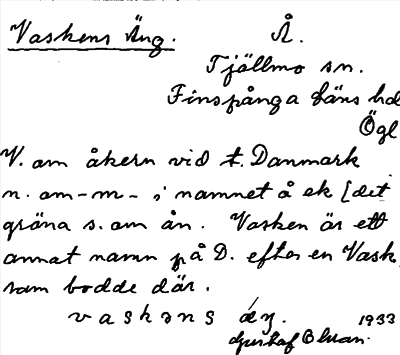 Vaskens Äng. Å.
Tjällmo sn.
Finspånga läns hd
Ögl
V. om åkern vid t. Danmark
n. om-m-, i namnet å ek [det
gröna s. om ån. Vasken är ett
annat namn på D. efter en Vask,
som bodde där.
vaskəns æŋ. 1933
Gustaf Ohlson.